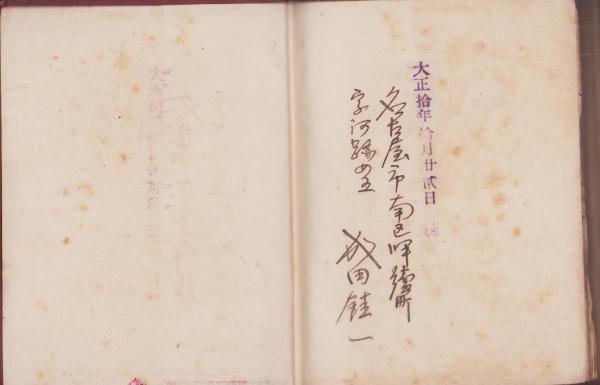 大正拾年拾月廿貳日
名古屋市南区呼續町
字河跡
成田銈一